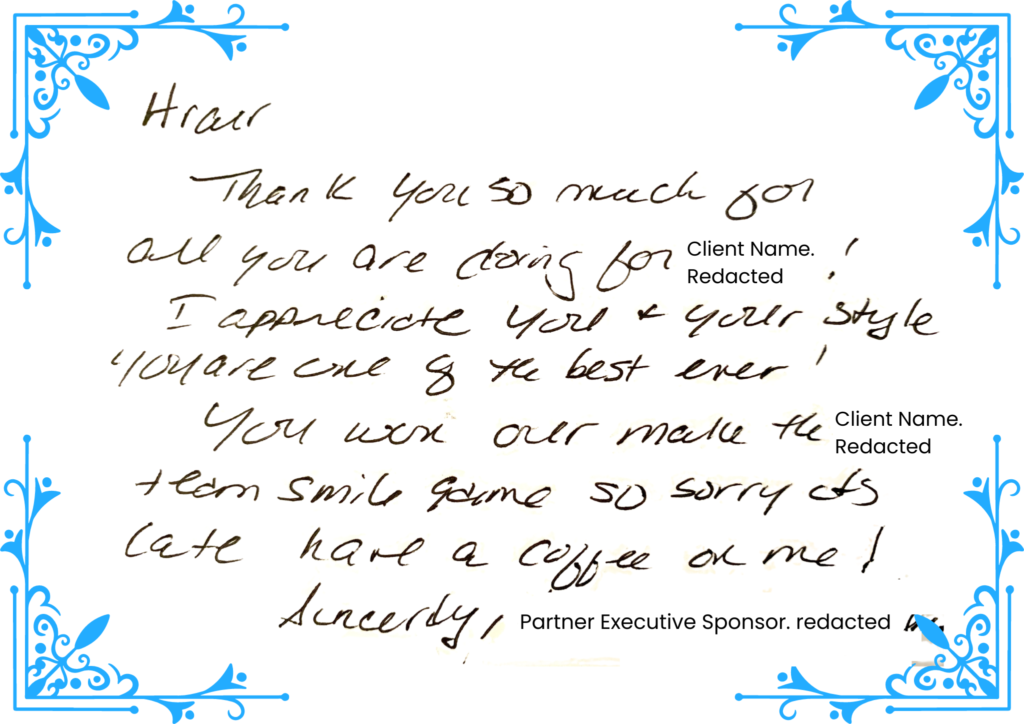 Hrair
Thank you so much for
all you are doing for Client Name. Redacted !
I appreciate you & your style
you are one of the best ever!
You won our make the Client Name. Redacted
team smile game so sorry its
late have a coffee on me!
Sincerely, Partner Executive Sponsor. redacted